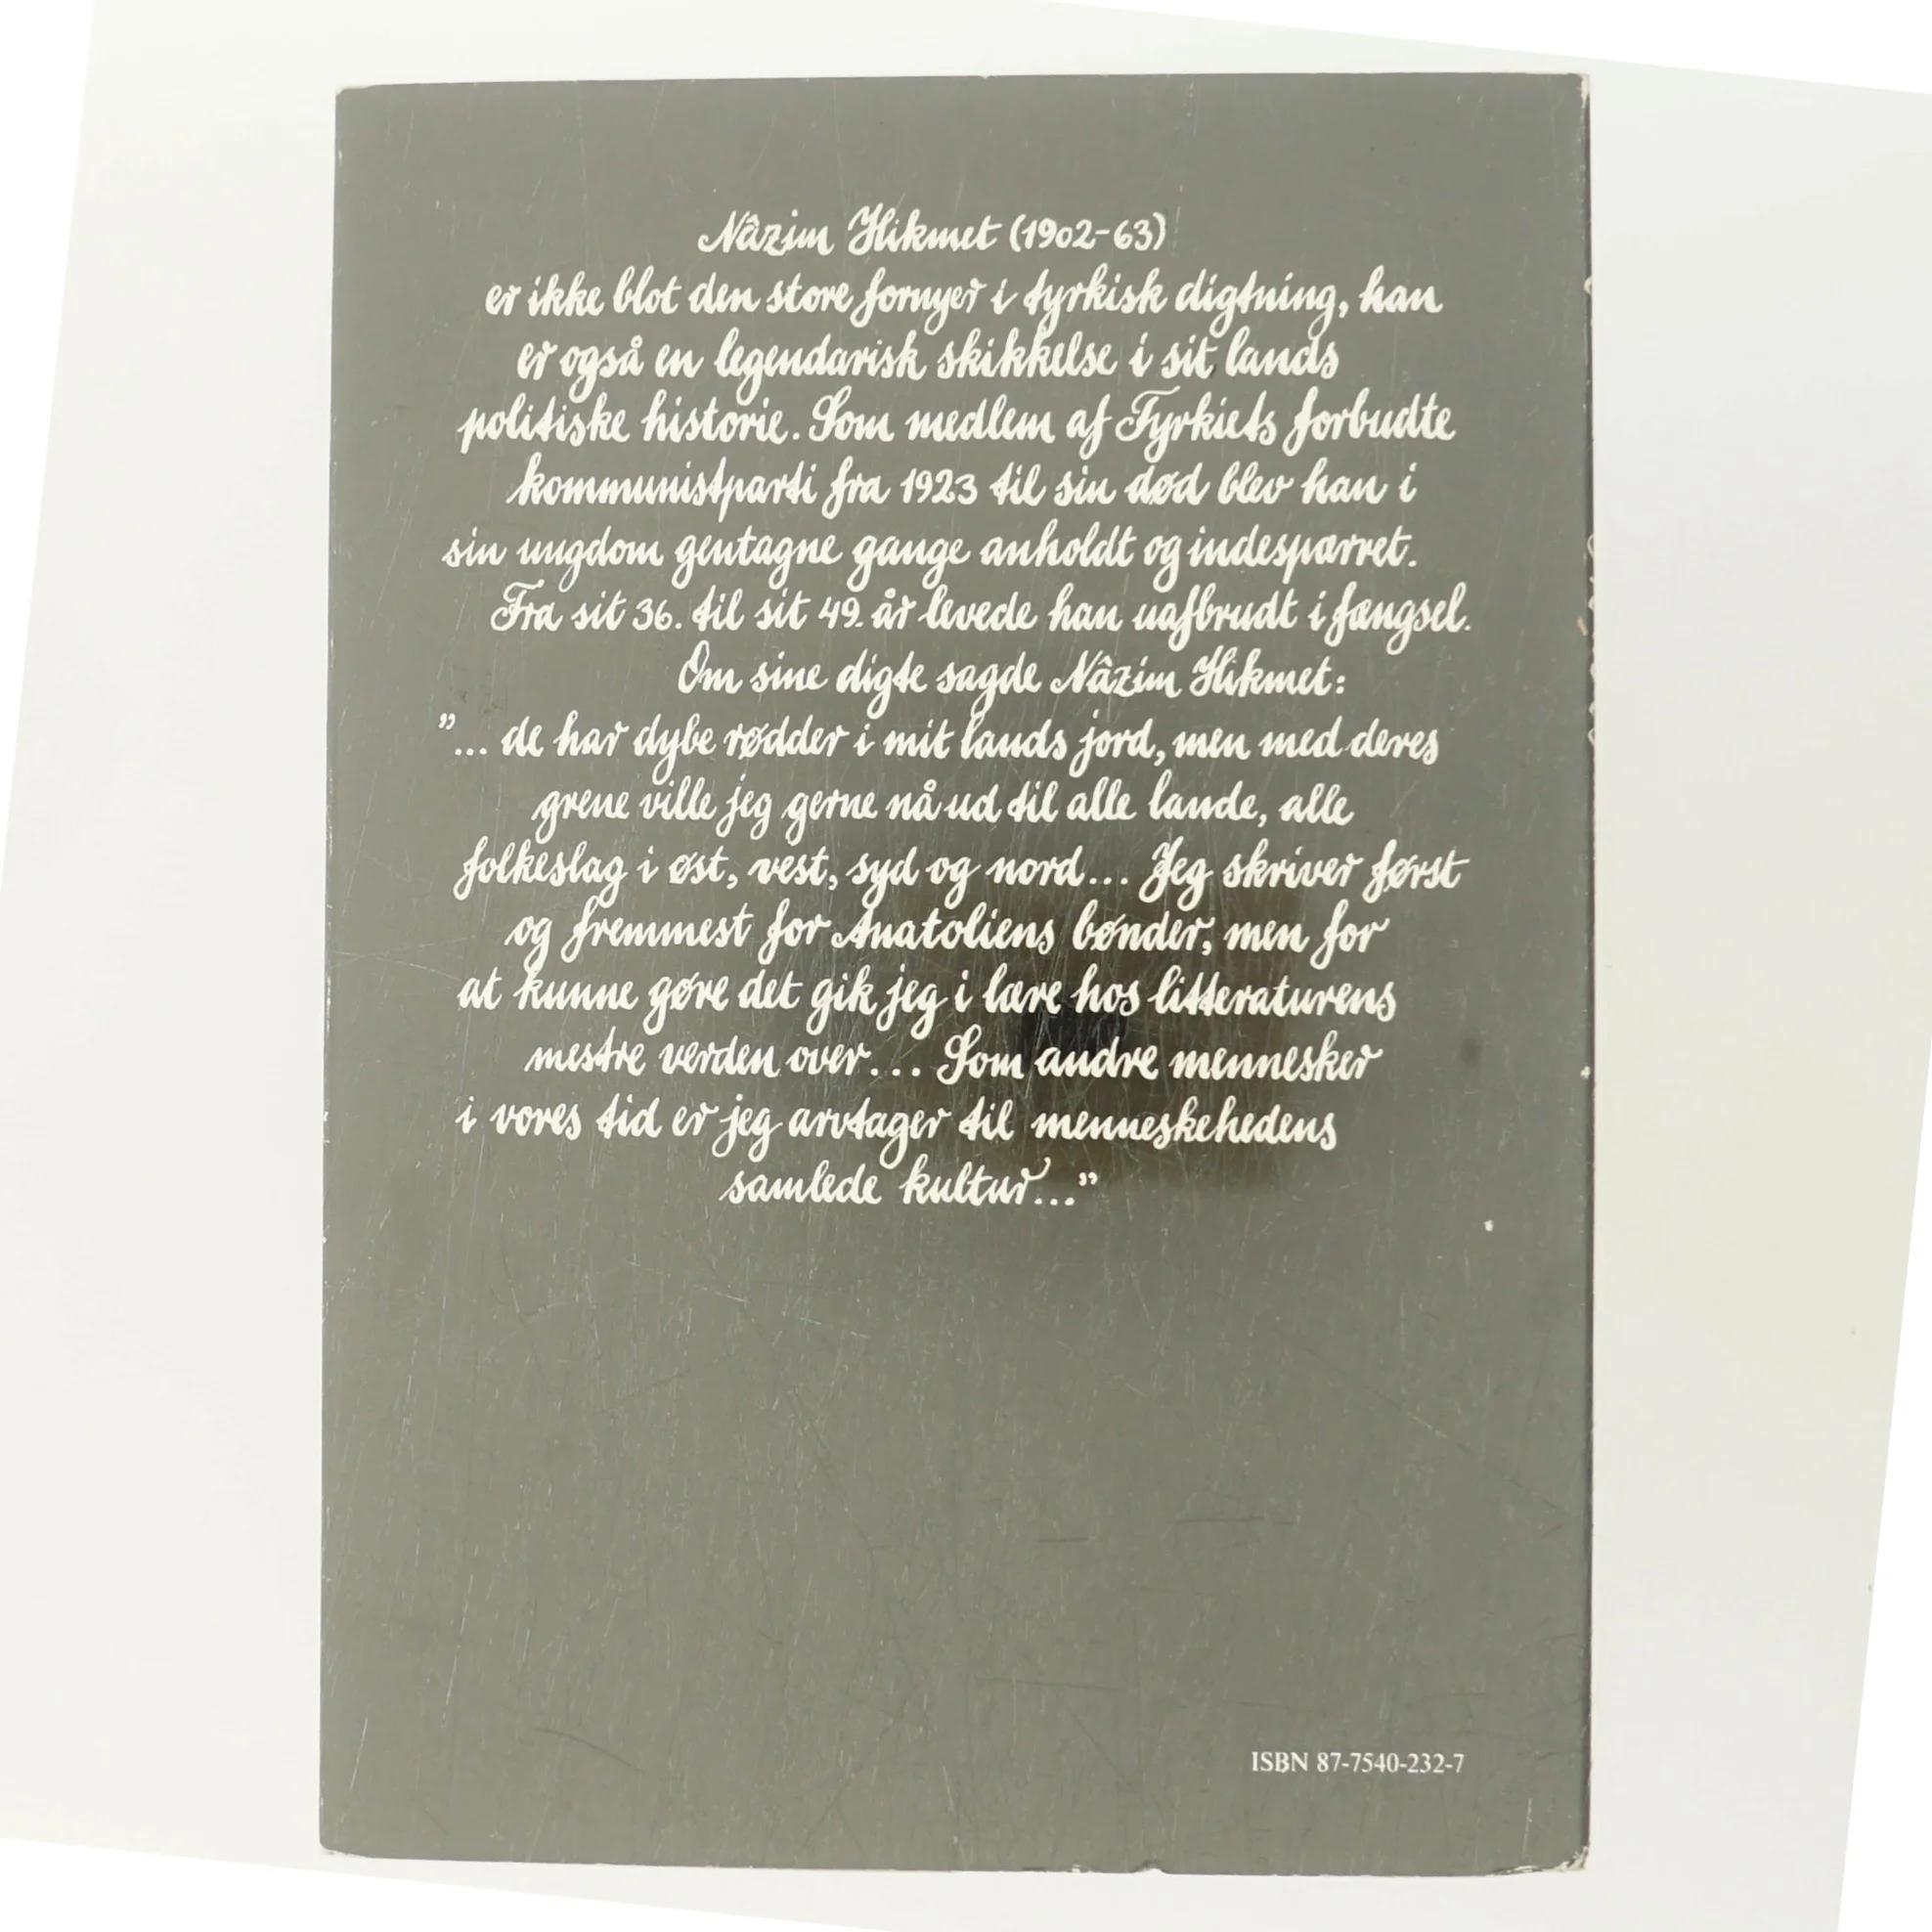 Nâzim Hikmet (1902-63)
er ikke blot den store fornyer i tyrkisk digtning, han
er også en legendarisk skikkelse i sit lands
politiske historie. Som medlem af Tyrkiets forbudte
kommunistparti fra 1923 til sin død blev han i
sin ungdom gentagne gange anholdt og indespærret.
Fra sit 36. til sit 49. år levede han uafbrudt i fængsel.
Om sine digte sagde Nâzim Hikmet:
”... de har dybe rødder i mit lands jord, men med deres
grene ville jeg gerne nå ud til alle lande, alle
folkeslag i øst, vest, syd og nord... Jeg skriver først
og fremmest for Anatoliens bønder, men for
at kunne gøre det gik jeg i lære hos litteraturens
mestre verden over... Som andre mennesker
i vores tid er jeg arvtager til menneskehedens
samlede kultur...”
ISBN 87-7540-232-7